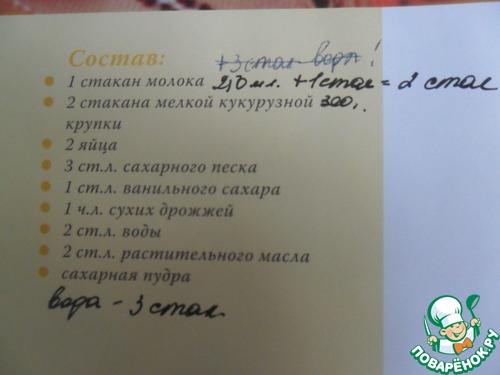 Состав:
+3 стак воды!
1 стакан молока 210 мл. +1 стак = 2 стак
2 стакана мелкой кукурузной 300,
крупки
2 яйца
3 ст.л. сахарного песка
1 ст.л. ванильного сахара
1 ч.л. сухих дрожжей
2 ст.л. воды
2 ст.л. растительного масла
сахарная пудра
вода - 3 стак
ПОВАРЁНОК.РУ